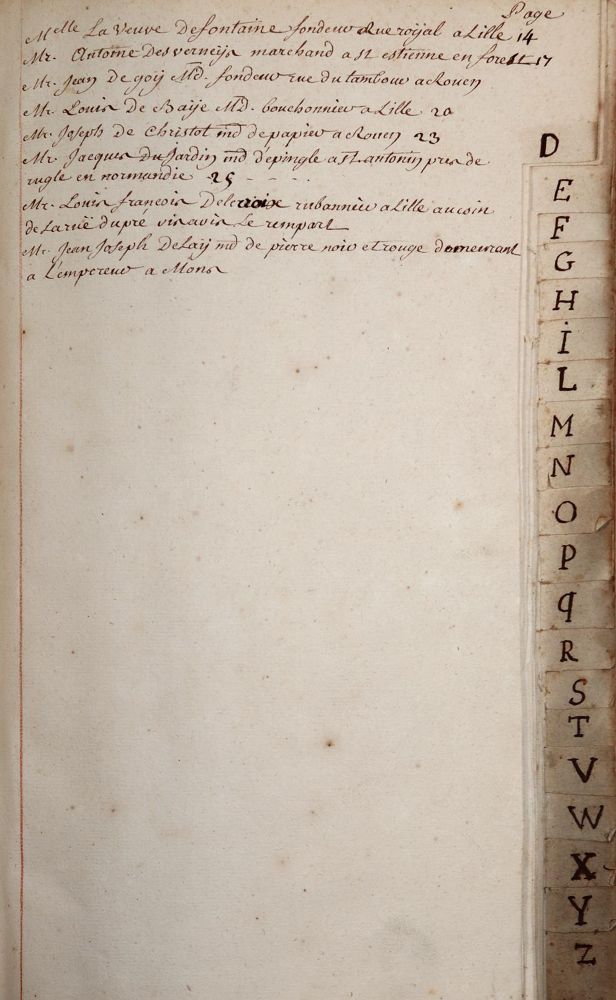 Page
Melle La Veuve Defontaine fondeur Rue roÿal a Lille 14
Mr. Antoine Desverneÿs marchand a st estienne en forest 17
Mr. Jean De goÿ Md. fondeur rue du tambour a Roüen
Mr. Louis De Baÿe Md. bouchonnier a Lille 20
Mr. Joseph De Christot md de papier a Roüen 23
Mr. Jacques Du Jardin md d'epingle a st. antonin pres de
rugle en normandie 25 - - - -
Mr. Louis francois Delcroix rubannier a Lille au coin
de La ruë du pré vis avis Le rempart
Mr. Jean Joseph De Laÿ md de pierre noir et rouge demeurant
a L'empereur a Mons
D
E
F
G
H
i
L
M
N
O
P
q
R
S
T
V
W
X
Y
Z